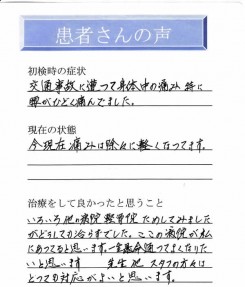 患者さんの声
初検時の症状
交通事故に遭って身体中の痛み 特に
腰がひどく痛んでました。
現在の状態
今現在痛みは除々に軽くなってます。
治療をして良かったと思うこと
いろいろ他の病院 整骨院 ためしてみました
がどうしても治らずでした。ここの病院が私
にあってると思います。一生懸命通ってよくなりた
いと思います 先生他 スタッフの方々は
とっても対応がよいと思います。